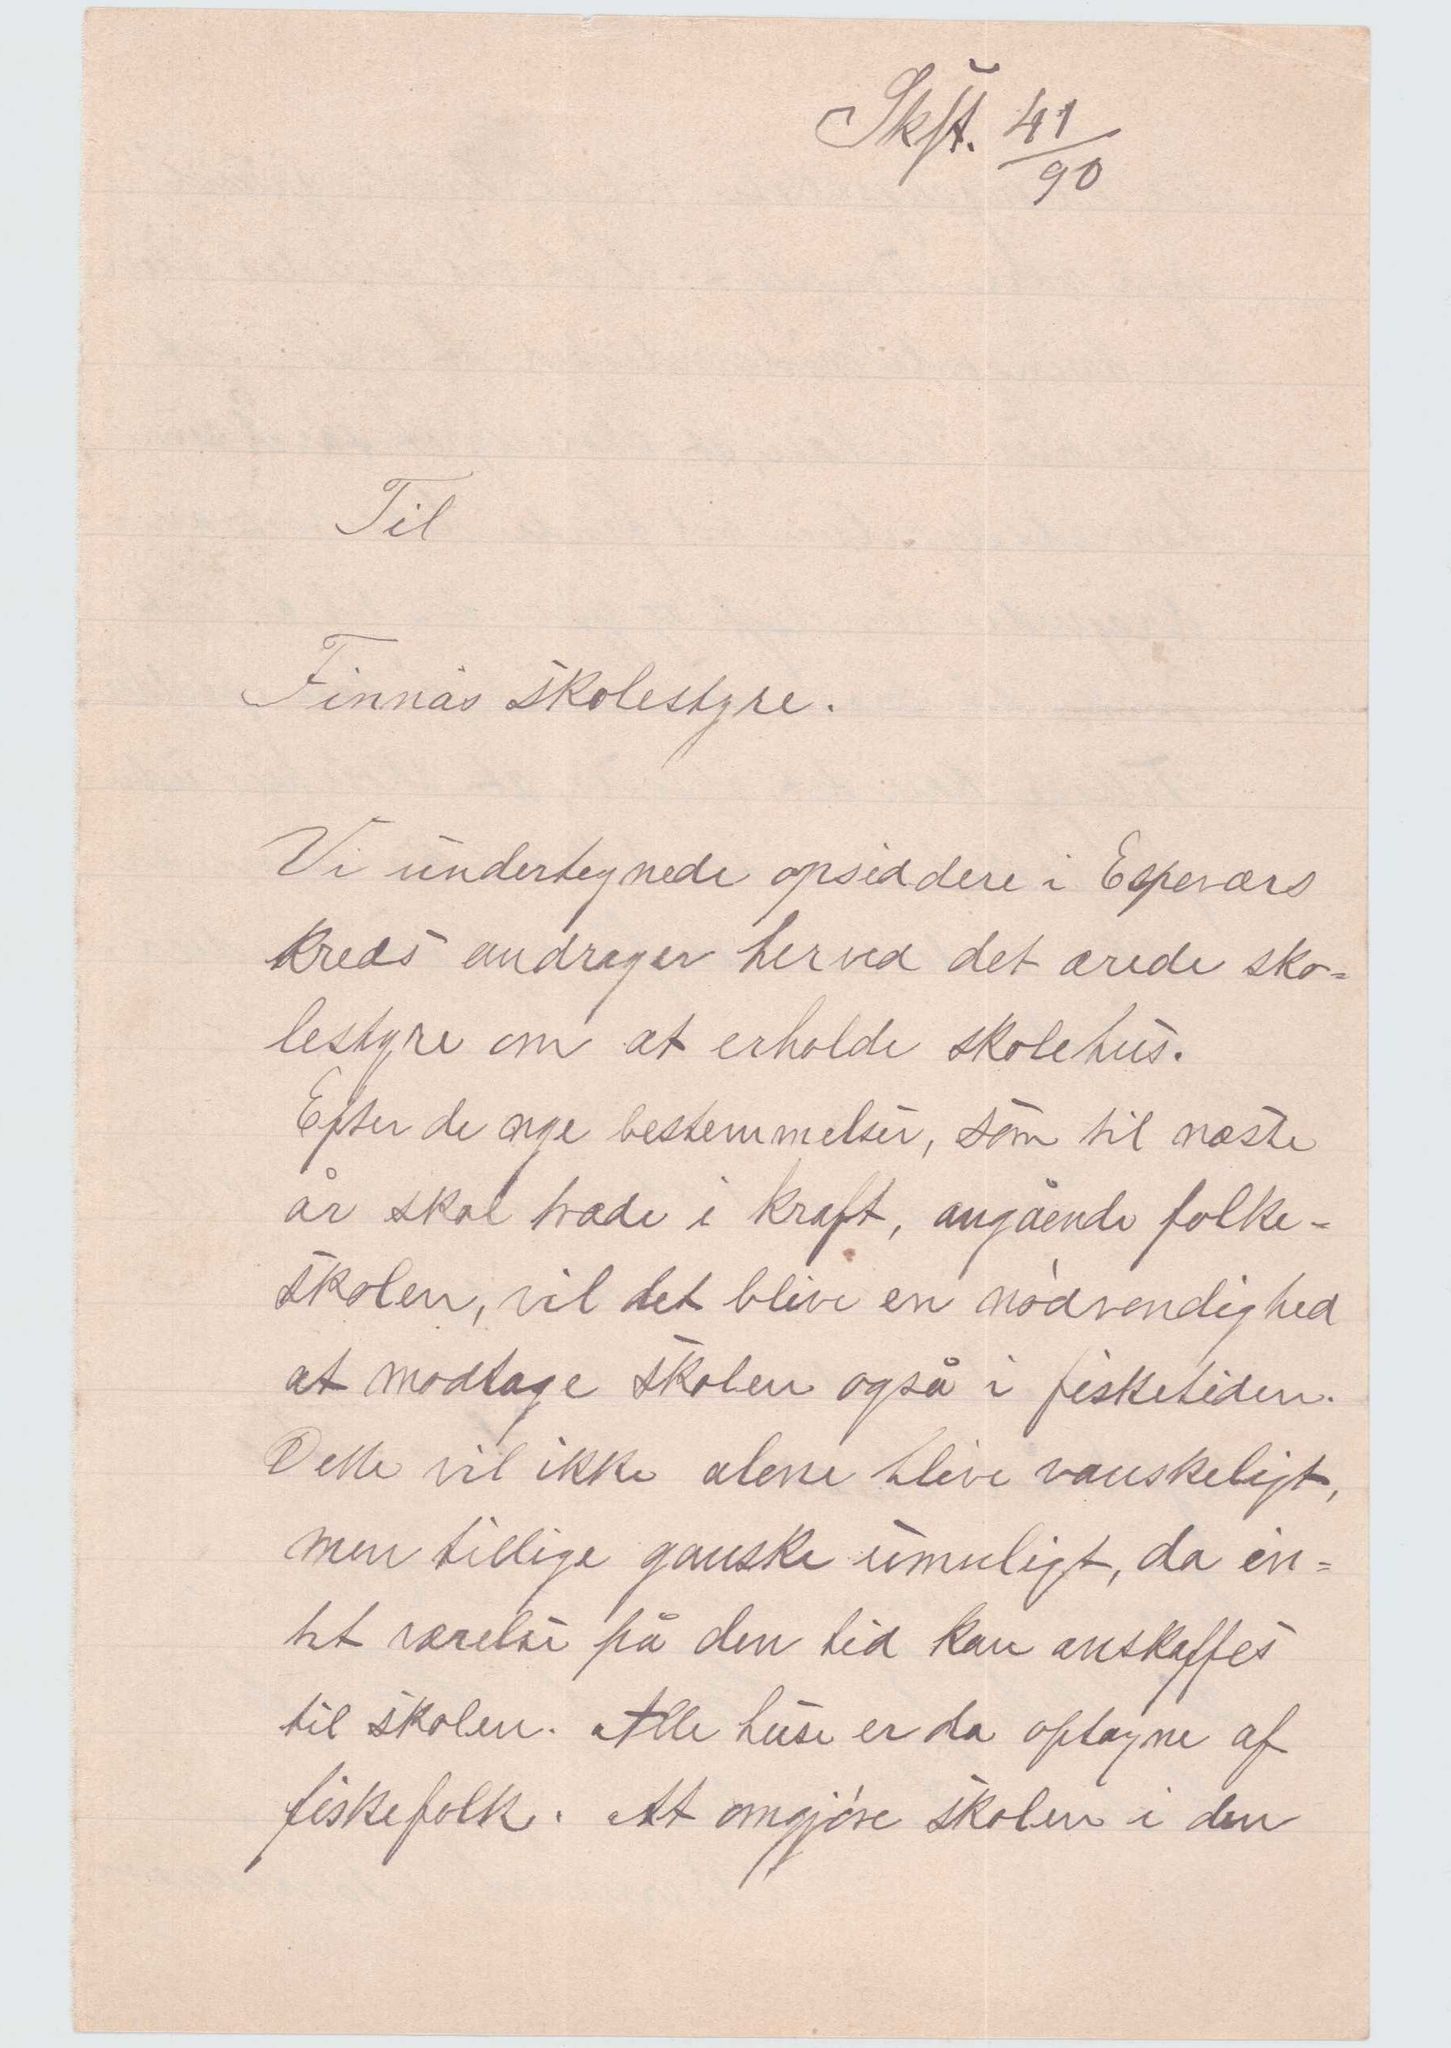 Skst. 41/90
Til
Finnås skolestyre.
Vi undertegnede opsiddere i Espeværs
kreds andrager herved det ærede sko-
lestyre om at erholde skolehus.
Efter de nye bestemmelser, som til næste
år skal træde i kraft, angående folke-
skolen, vil det blive en nødvendighed
at modtage skolen også i fisketiden.
Dette vil ikke alene blive vanskeligt,
men tillige ganske umuligt, da in-
tet værelse på den tid kan anskaffes
til skolen. Alle huse er da optagne af
fiskefolk. At omgjøre skolen i den